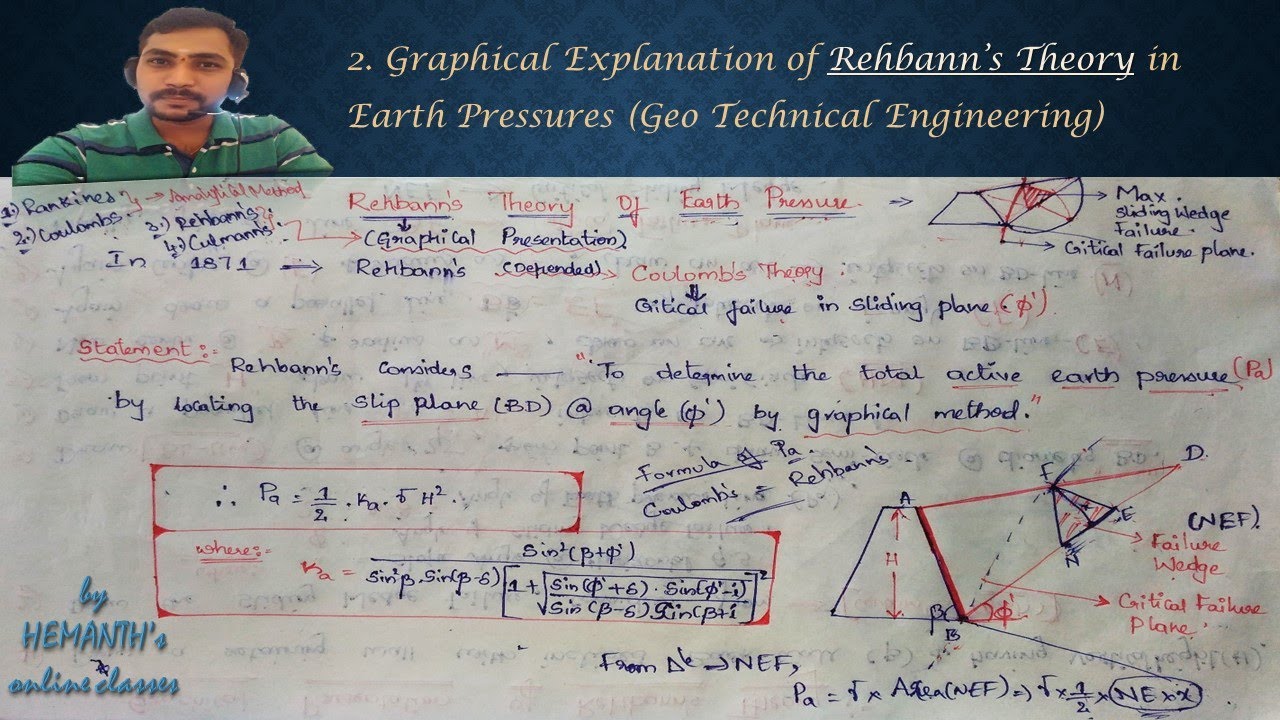 2. Graphical Explanation of Rehbann's Theory in
Earth Pressures (Geo Technical Engineering)
1.) Rankines } → Analytical Method
2.) Coulombs.
3.) Rehbann's }
4.) Culmanns.
Rehbann's Theory Of Earth Pressure. →
(Graphical Presentation)
Max.
Sliding Wedge
Failure.
Critical Failure plane.
In 1871 ⟹ Rehbann's (Depended) → Coulomb's Theory:
Critical failure in sliding plane. (ϕ')
Statement:-
Rehbann's considers —— "To determine the total active earth pressure (Pa)
by locating the slip plane (BD) @ angle (ϕ') by graphical method."
Formula of Pa.
Coulomb's = Rehbann's.
∴ Pa = 1/2 . Ka . γ H².
where:-
Ka = Sin²(β+ϕ') / Sin²β . Sin(β-δ) [1 + √(Sin(ϕ'+δ) . Sin(ϕ'-i) / Sin(β-δ) Sin(β+i))]²
A
H
β
B
ϕ'
F
D.
E
N
x
(NEF).
Failure
Wedge
Critical Failure
Plane.
From Δle → NEF,
Pa = γ x Area (NEF) ⇒ γ x 1/2 x (NE x x)
by
HEMANTH's
online classes